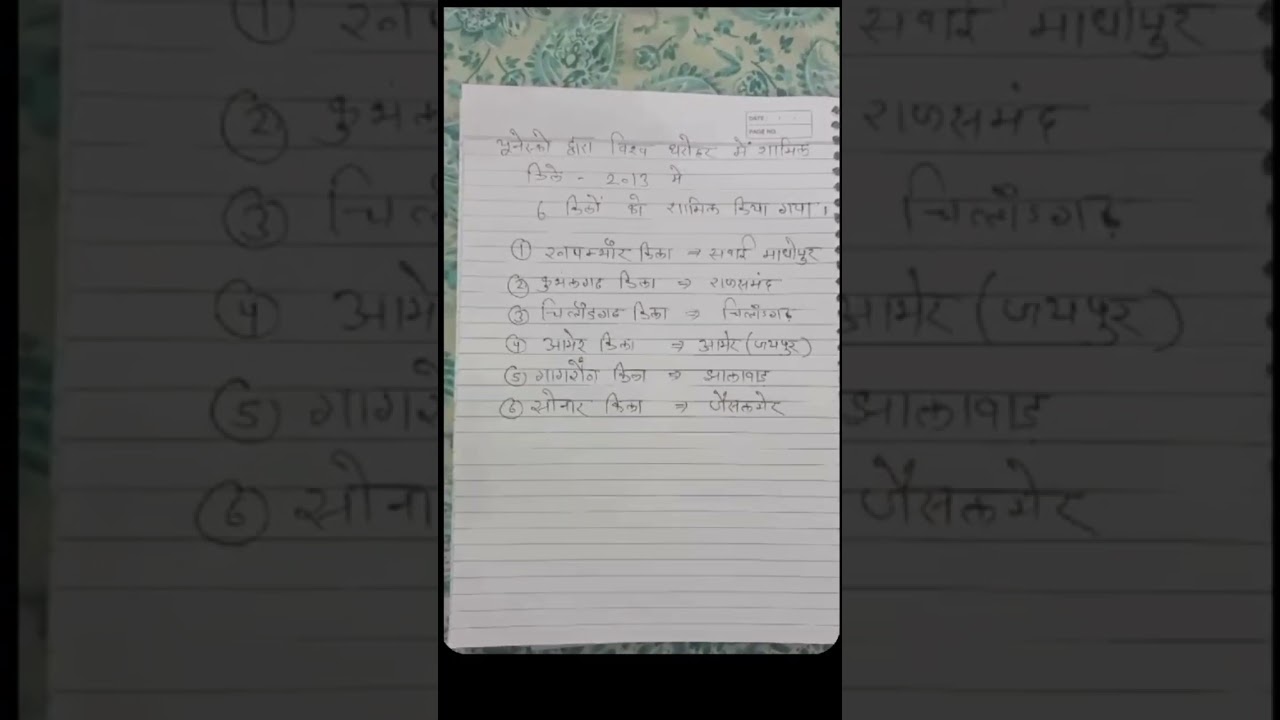 DATE
PAGE NO.
यूनेस्को द्वारा विश्व धरोहर में शामिल
किले - 2013 मे
6 किलों को शामिल किया गया।
① रणथम्भौर किला ⇒ सवाई माधोपुर
② कुंभलगढ किला ⇒ राजसमंद
③ चित्तौड़गढ किला ⇒ चित्तौड़गढ़
④ आमेर किला ⇒ आमेर (जयपुर)
⑤ गागरौन किला ⇒ झालावाड़
⑥ सोनार किला ⇒ जैसलमेर